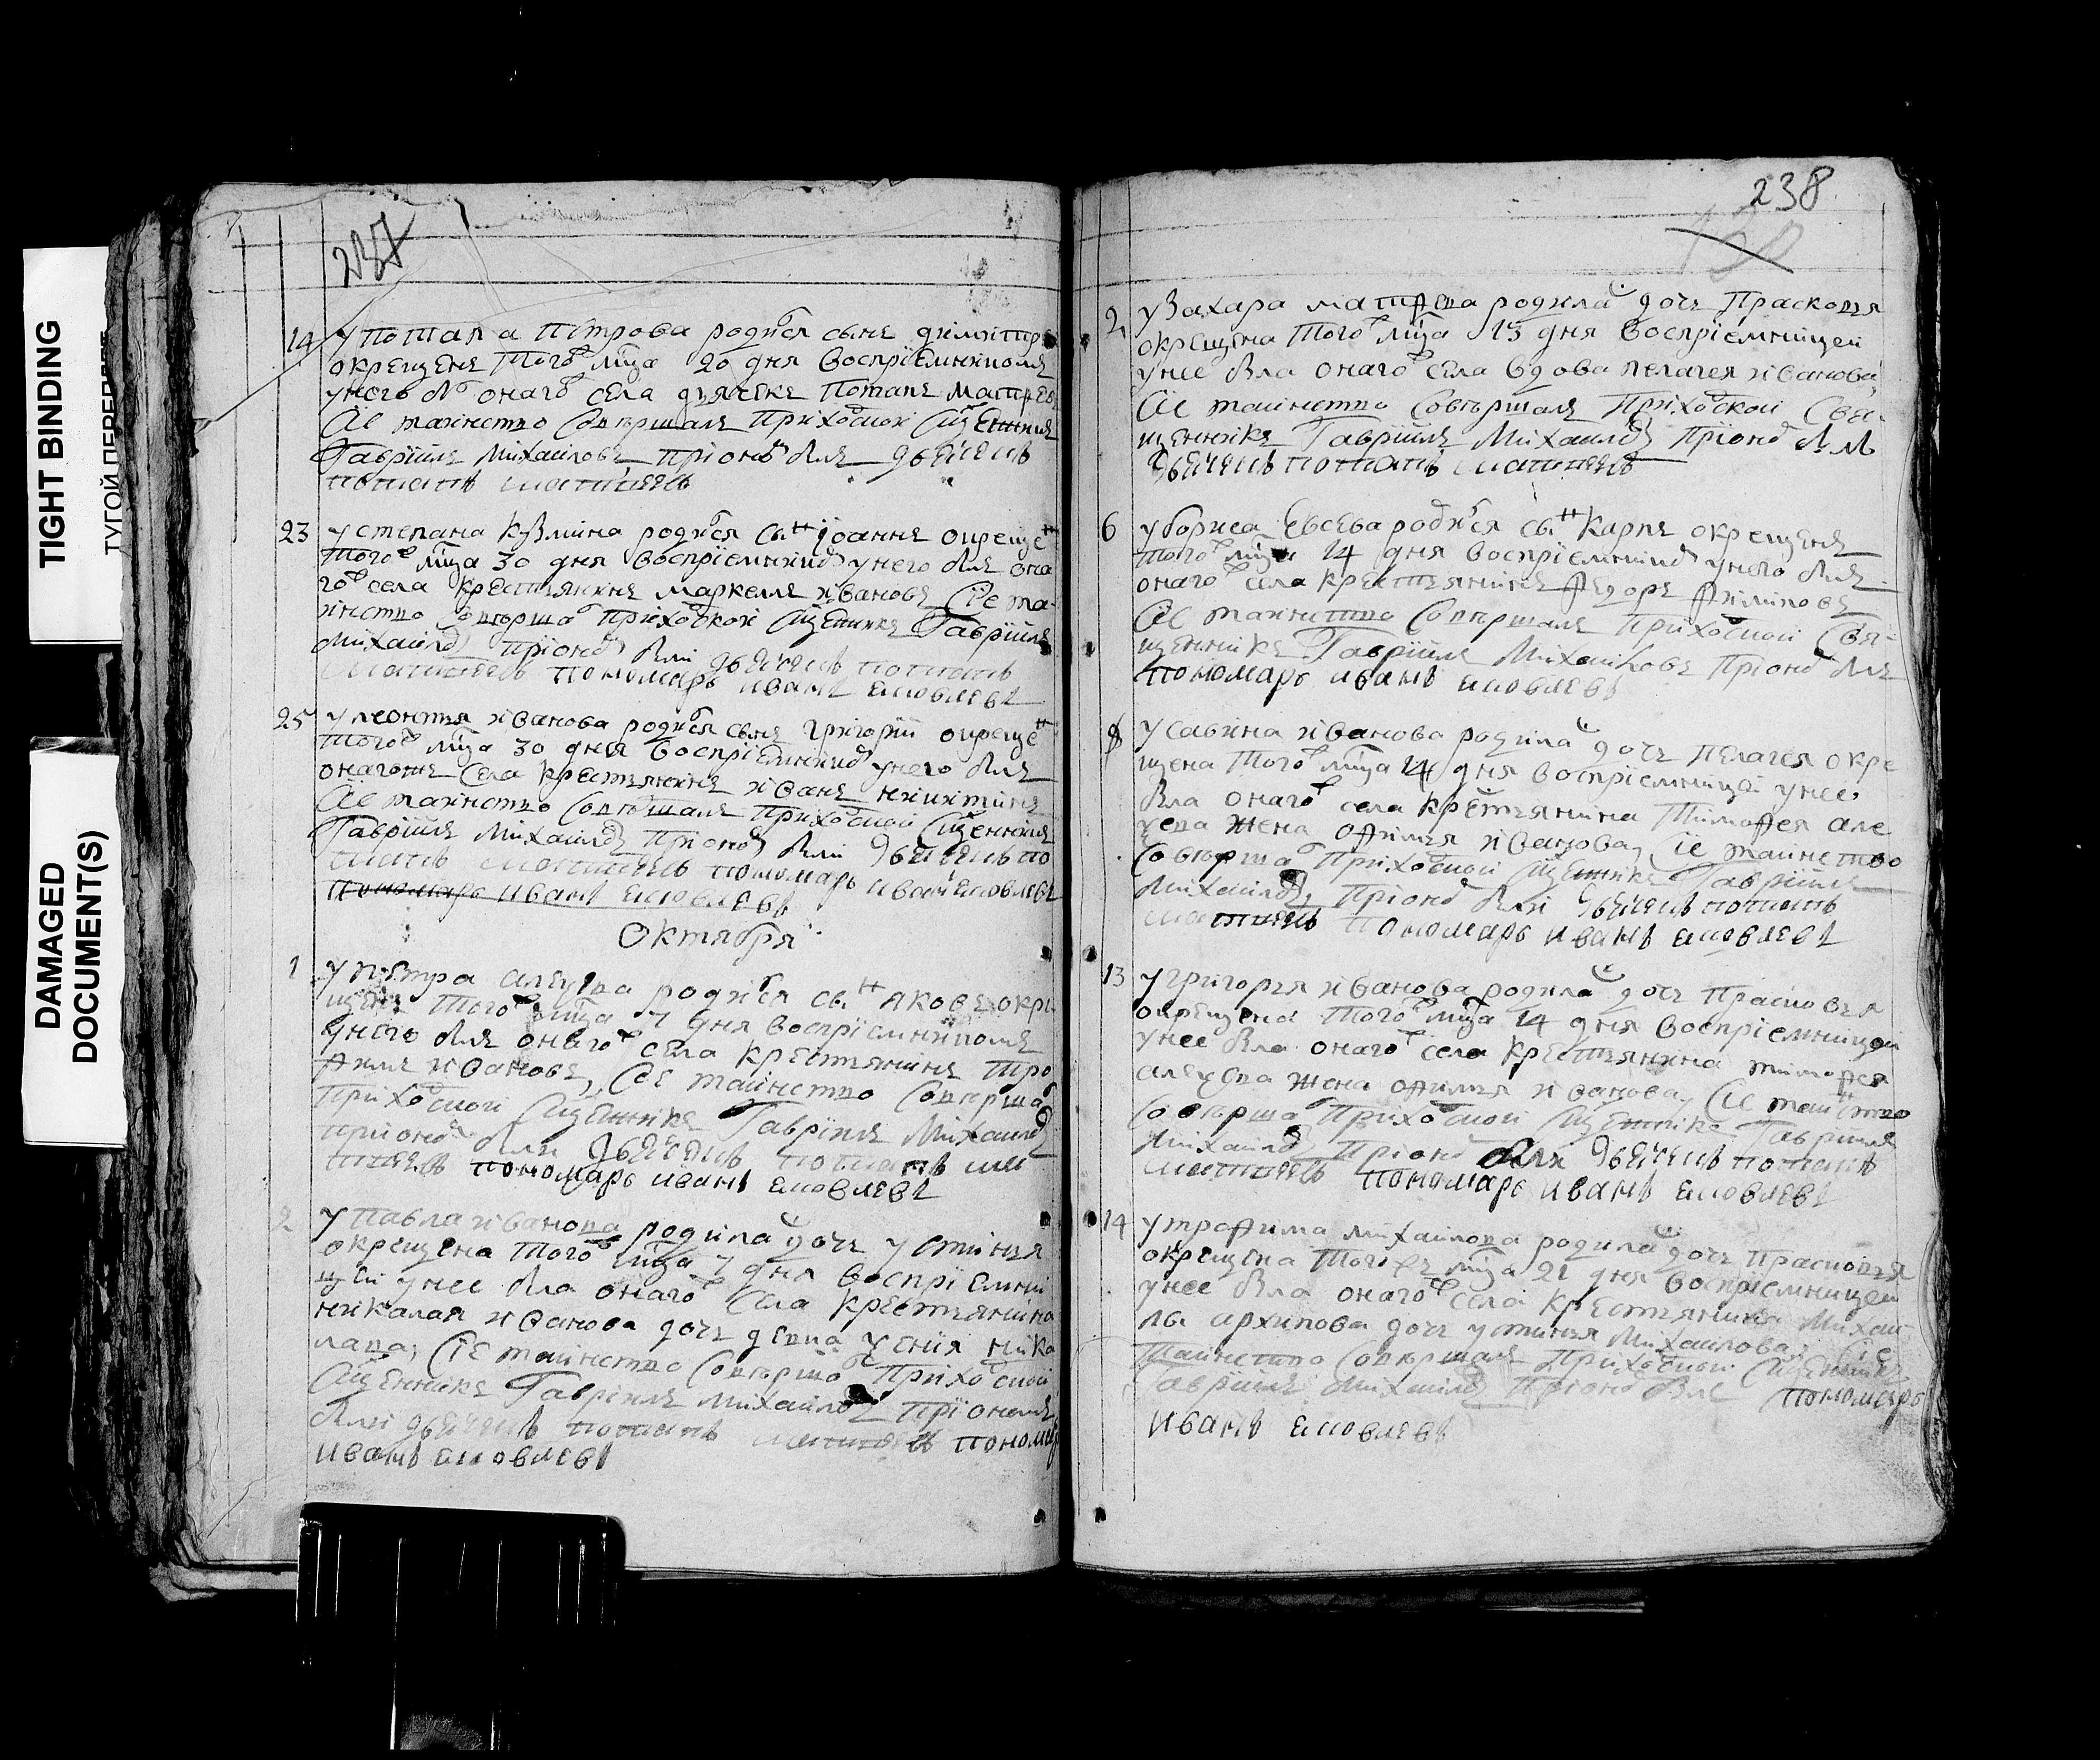 TIGHT BINDING
ТУГОЙ ПЕРЕПЛЕТ
DAMAGED
DOCUMENT(S)
237
14 у Потапа Петрова родился сынъ Димитрий
окрещенъ того мца 20 дня воспрiемникомъ
у него былъ онаго села дьячекъ Потапъ Матвеев
Сiе таинство совершалъ Приходской Сщенникъ
Гаврiилъ Михаиловъ, При ономъ былъ дьячекъ
потапъ матвѣевъ
23 у Степана Кузмина родился сынъ Iоаннъ окрещенъ
того мца 30 дня воспрiемникомъ у него былъ она
го села крестьянинъ маркелъ Ивановъ Сiе та
инство совершалъ Приходской Сщенникъ Гаврiилъ
Михаиловъ При ономъ были дьячекъ потапъ
матвѣевъ пономарь иванъ яковлевъ
25 у Леонтья Иванова родился сынъ Григорiй окрещенъ
того мца 30 дня воспрiемникомъ у него былъ
онагоже села крестьянинъ Иванъ никитинъ
Сiе таинство совершалъ Приходской Сщенникъ
Гаврiилъ Михаиловъ При ономъ были дьячекъ по
тапъ матвѣевъ пономарь иванъ яковлевъ
пономарь иванъ яковлевъ
Октября
1 у Петра родился сынъ Яковъ окре
щенъ того мца 7 дня воспрiемникомъ
у него былъ онаго села крестьянинъ Тро
фимъ Ивановъ, Сiе таинство совершалъ
Приходской Сщенникъ Гаврiилъ Михаиловъ
При ономъ были дьячекъ потапъ мат
вѣевъ пономарь иванъ яковлевъ
2 у Павла Иванова родилась дочь Устинья
окрещена того мца 7 дня воспрiемни
цей у нее была онаго села крестьянина
николая Иванова дочь девка нико
лаева, Сiе таинство совершалъ Приходской
Сщенникъ Гаврiилъ Михаиловъ При ономъ
были дьячекъ потапъ матвѣевъ пономарь
иванъ яковлевъ
238
2 у Захара матфева родилась дочь Прасковья
окрещена того мца 13 дня воспрiемницей
у нее была онаго села вдова пелагея Иванова
Сiе таинство совершалъ Приходской Свя
щенникъ Гаврiилъ Михаиловъ При ономъ был
дьячекъ потапъ матвѣевъ
6 у Бориса Евсева родился сынъ Карпъ окрещенъ
того мца 14 дня воспрiемникомъ у него былъ
онаго села крестьянинъ Федоръ Филиповъ
Сiе таинство совершалъ Приходской Свя
щенникъ Гаврiилъ Михаиловъ При ономъ былъ
пономарь иванъ яковлевъ
8 у Савина Иванова родилась дочь Пелагея окре
щена того мца 14 дня воспрiемницей у нее
была онаго села крестьянина Тимофея але
жена офимья Иванова, Сiе таинство
совершалъ Приходской Сщенникъ Гаврiилъ
Михаиловъ, При ономъ были дьячекъ потапъ
матвѣевъ пономарь иванъ яковлевъ
13 у Григорья Иванова родилась дочь Прасковья
окрещена того мца 14 дня воспрiемницей
у нее была онаго села крестьянина тимофея
жена офимья Иванова, Сiе таинство
совершалъ Приходской Сщенникъ Гаврiилъ
Михаиловъ При ономъ были дьячекъ потапъ
матвѣевъ пономарь иванъ яковлевъ
14 у Трофима Михаилова родилась дочь Прасковья
окрещена того мца 21 дня воспрiемницей
у нее была онаго села крестьянина Михаи
лы архипова дочь устинья Михаилова, Сiе
таинство совершалъ Приходской Сщенникъ
Гаврiилъ Михаиловъ При ономъ былъ пономарь
иванъ яковлевъ